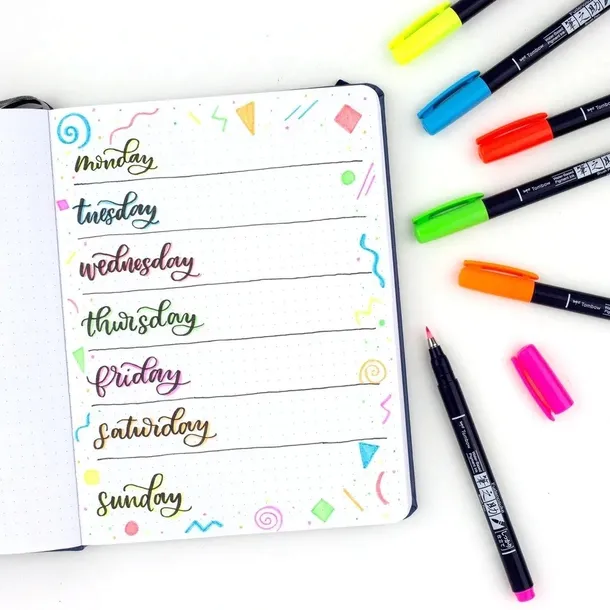 monday
tuesday
wednesday
thursday
friday
saturday
sunday
Tombow
Tombow
Tombow
Tombow
Tombow